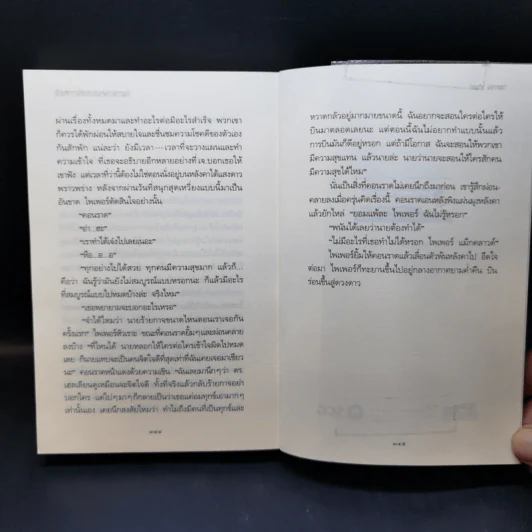 ผ่านเรื่องทั้งหมดมาและทำอะไรต่อมิอะไรสำเร็จ พวกเขา
ก็ควรได้พักผ่อนให้สบายใจและชื่นชมความโชคดีของตัวเอง
กันสักพัก แน่ละว่า ยังมีเวลา—เวลาที่จะวางแผนและทำ
ความเข้าใจ ที่เธอจะอธิบายอีกหลายอย่างที่ เจ.บอกเธอให้
เขาฟัง แต่เวลาที่ว่านี้ต้องไม่ใช่ตอนนี้บนหลังคาใต้แสงดาว
พราวพร่าง หลังจากผ่านวันที่สนุกสุดเหวี่ยงแบบนี้มาเป็น
อันขาด ไพเพอร์ตัดสินใจอย่างนั้น
"คอนราด"
"ฮ่า...ฮะ"
"เราทำได้เจ๋งไปเลยเนอะ"
"หือ...อ...อ"
"ทุกอย่างไปได้สวย ทุกคนมีความสุขมาก แล้วก็...
คือว่า ฉันรู้ว่ามันยังไม่สมบูรณ์แบบหรอกนะ ก็แล้วมีอะไร
ที่สมบูรณ์แบบไปหมดบ้างล่ะ จริงไหม"
"เธอพยายามจะบอกอะไรเหรอ"
"จำได้ไหมว่า นายร้ายกาจขนาดไหนตอนเราเจอกัน
ครั้งแรก" ไพเพอร์หัวเราะ ขณะที่คอนราดยิ้มๆ และผ่อนคลาย
ลงบ้าง "ที่ไหนได้ นายหลอกให้ใครต่อใครเข้าใจผิดไปหมด
เลย ก็นายแทบจะเป็นคนจิตใจดีที่สุดเท่าที่ฉันเคยเจอมาเชียว
นะ" คอนราดหน้าแดงด้วยความเขิน "ฉันเลยมานึกๆ ว่า ดร.
เฮลเลียนดูเหมือนจะจิตใจดี ทั้งที่จริงแล้วกลับร้ายกาจอย่า
บอกใคร แต่ไปๆ มาๆ ก็กลายเป็นว่าเธอแค่อมทุกข์เอามากๆ
เท่านั้นเอง เคยนึกสงสัยไหมว่า ทำไมถึงมีคนที่เป็นทุกข์และ
๓๔๔
หวาดกลัวอยู่มากมายขนาดนี้ ฉันอยากจะสอนใครต่อใครให้
บินมาตลอดเลยนะ แต่ตอนนี้ฉันไม่อยากทำแบบนั้นแล้ว
การบินมันก็ดีอยู่หรอก แต่ถ้ามีโอกาส ฉันจะสอนให้พวกเขา
มีความสุขแทน แล้วนายล่ะ นายว่านายจะสอนให้ใครสักคน
มีความสุขได้ไหม"
นั่นเป็นสิ่งที่คอนราดไม่เคยนึกถึงมาก่อน เขารู้สึกผ่อน-
คลายลงเมื่อครุ่นคิดเรื่องนี้ คอนราดเอนหลังพิงแผ่นมุงหลังคา
แล้วยักไหล่ "ยอมแพ้ละ ไพเพอร์ ฉันไม่รู้หรอก"
"พนันได้เลยว่านายต้องทำได้"
"ไม่มีอะไรที่เธอทำไม่ได้หรอก ไพเพอร์ แม็กคลาวด์"
ไพเพอร์ยิ้มให้คอนราดแล้วเลื่อนตัวพ้นหลังคาไป อึดใจ
ต่อมา ไพเพอร์ก็ทะยานขึ้นไปอยู่กลางอากาศยามค่ำคืน บิน
ร่อนขึ้นสู่ดวงดาว
๓๔๕